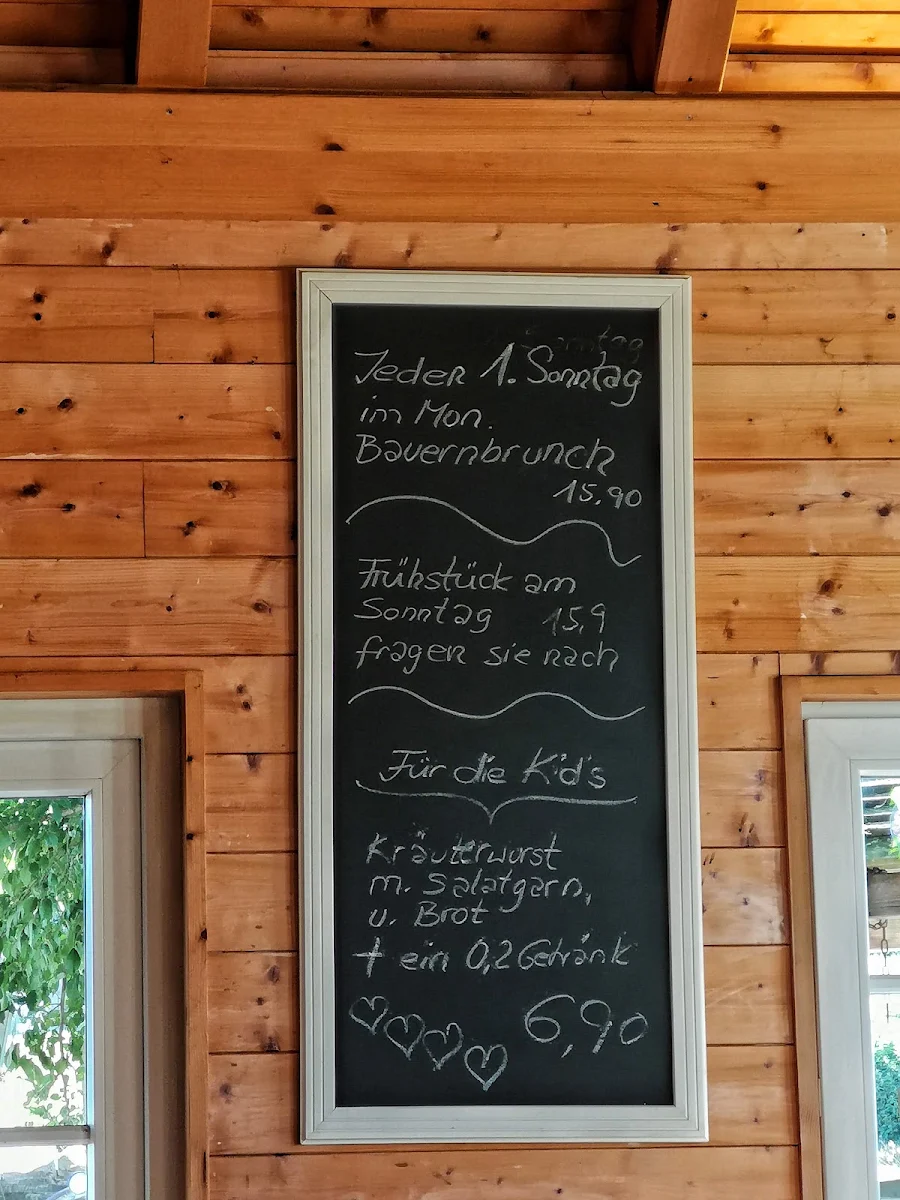 Jeder 1. Sonntag
im Mon.
Bauernbrunch
15.90
Frühstück am
Sonntag 15,9
fragen sie nach
Für die Kid's
Kräuterwurst
m. Salatgarn,
u. Brot
+ ein 0,2 Getränk
6,90